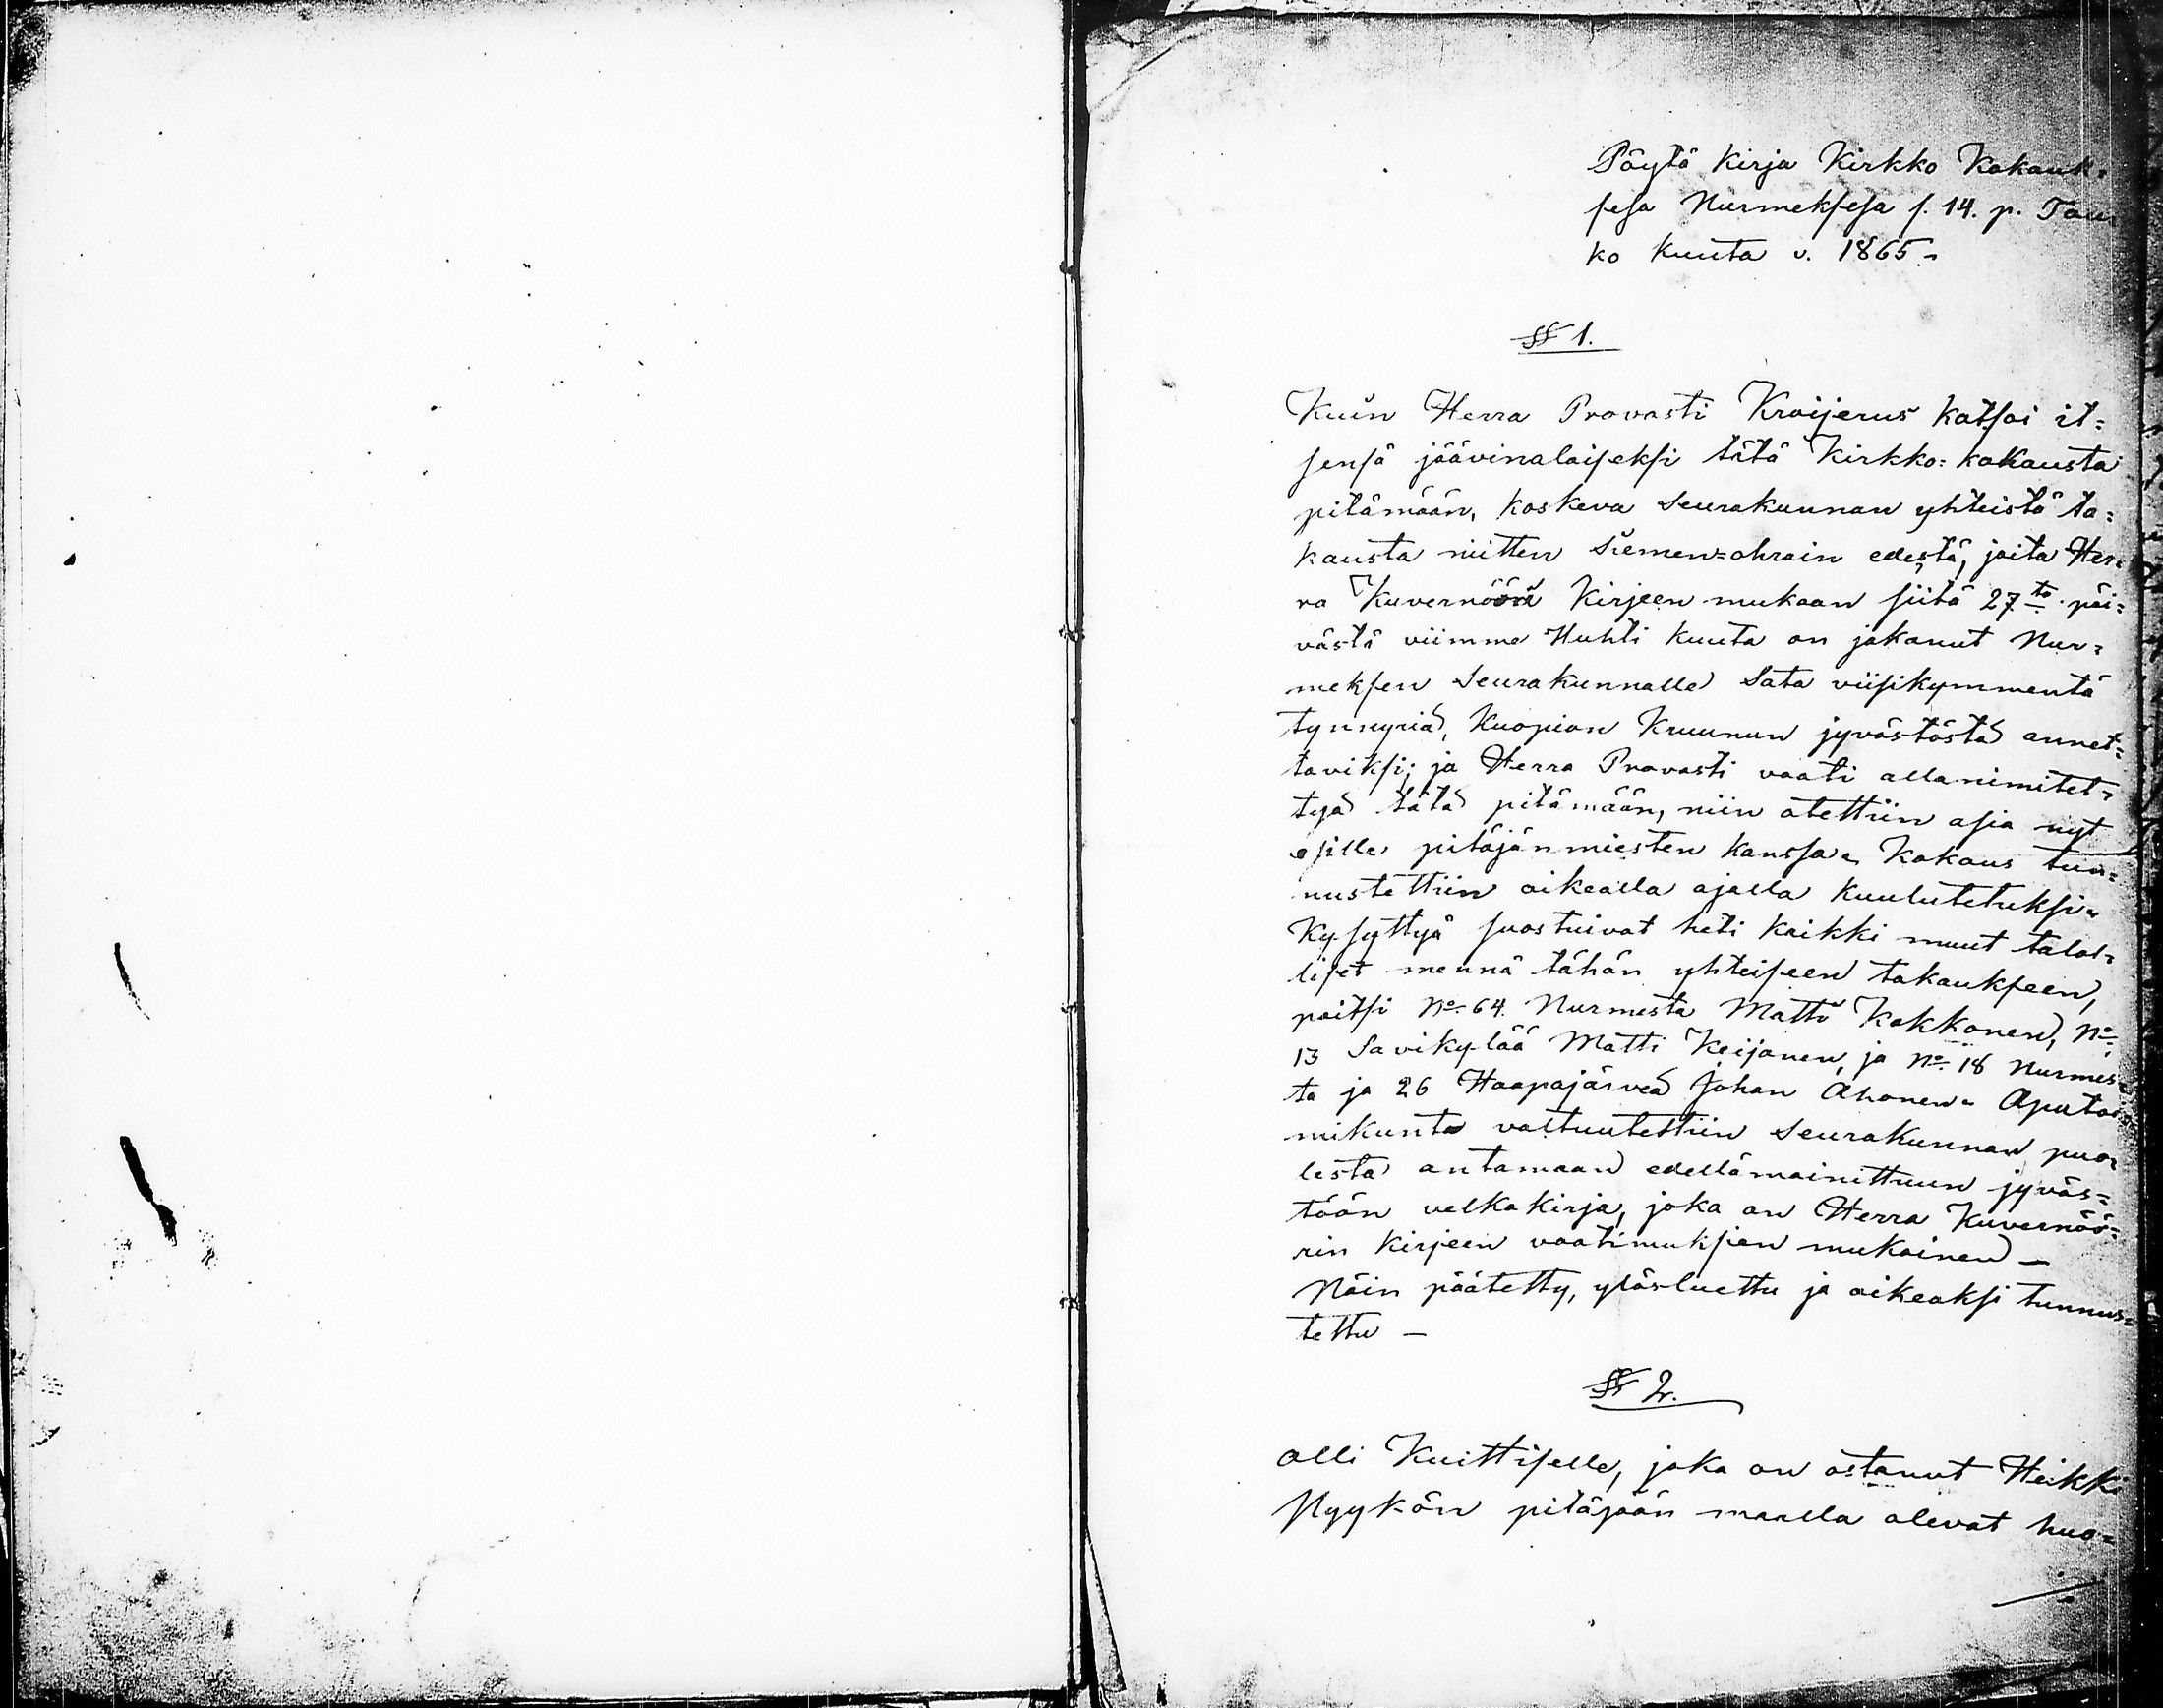 Pöytä Kirja Kirkko Kokauk=
sesa Nurmeksesa s. 14. p. Tou
ko kuuta v. 1865.
§ 1.
Kuin Herra Provasti Kroijerus katsoi it=
sensä jäävinalaiseksi tätä Kirkko=kokausta
pitämään, koskeva Seurakunnan yhteistä ta=
kausta niitten Siemen=ohrain edestä, joita Her=
ra Kuvernöörin Kirjeen mukaan siitä 27to. päi=
västä viimme Huhti kuuta on jakanut Nur=
meksen Seurakunnalle Sata viisikymmentä
tynnyriä, Kuopion Kruunun jyvästöstä annet=
taviksi; ja Herra Provasti vaati allanimitet=
tyä tätä pitämään, niin otettiin asia nyt
esille pitäjänmiesten kanssa. Kokous tun=
nustettiin oikealla ajalla kuulutetuksi.
Kysyttyä suostuivat heti kaikki muut talol=
liset mennä tähän yhteiseen takaukseen,
paitsi No. 64. Nurmesta Matti Kokkonen, No.
13 Savikylää Matti Keijonen, ja No. 18 Nurmes=
ta ja 26 Haapajärveä Johan Ahonen. Aputoi=
mikunta valtuutettiin Seurakunnan puo=
lesta antamaan edellämainittuun jyväs=
töön velkakirja, joka on Herra Kuvernöö=
rin Kirjeen vaatimuksen mukainen —
Näin päätetty, ylösluettu ja oikeaksi tunnus=
tettu —
§ 2.
Olli Kuittiselle, joka on ostanut Heikki
Nyykön pitäjään maalla olevat huo=